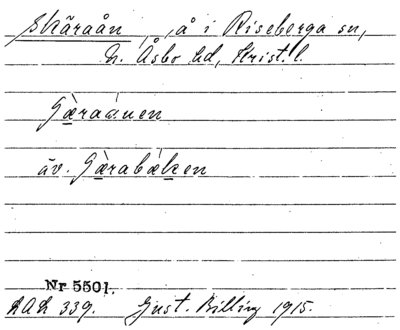 Skäraån, å i Riseberga sn,
N. Åsbo hd, Krist. l.
Gæraånen
äv. Gærabæken
Nr 5501.
LAL 339. Gust. Billing 1915.